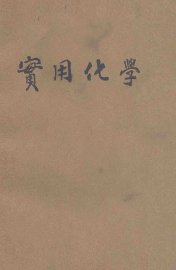 實用化學